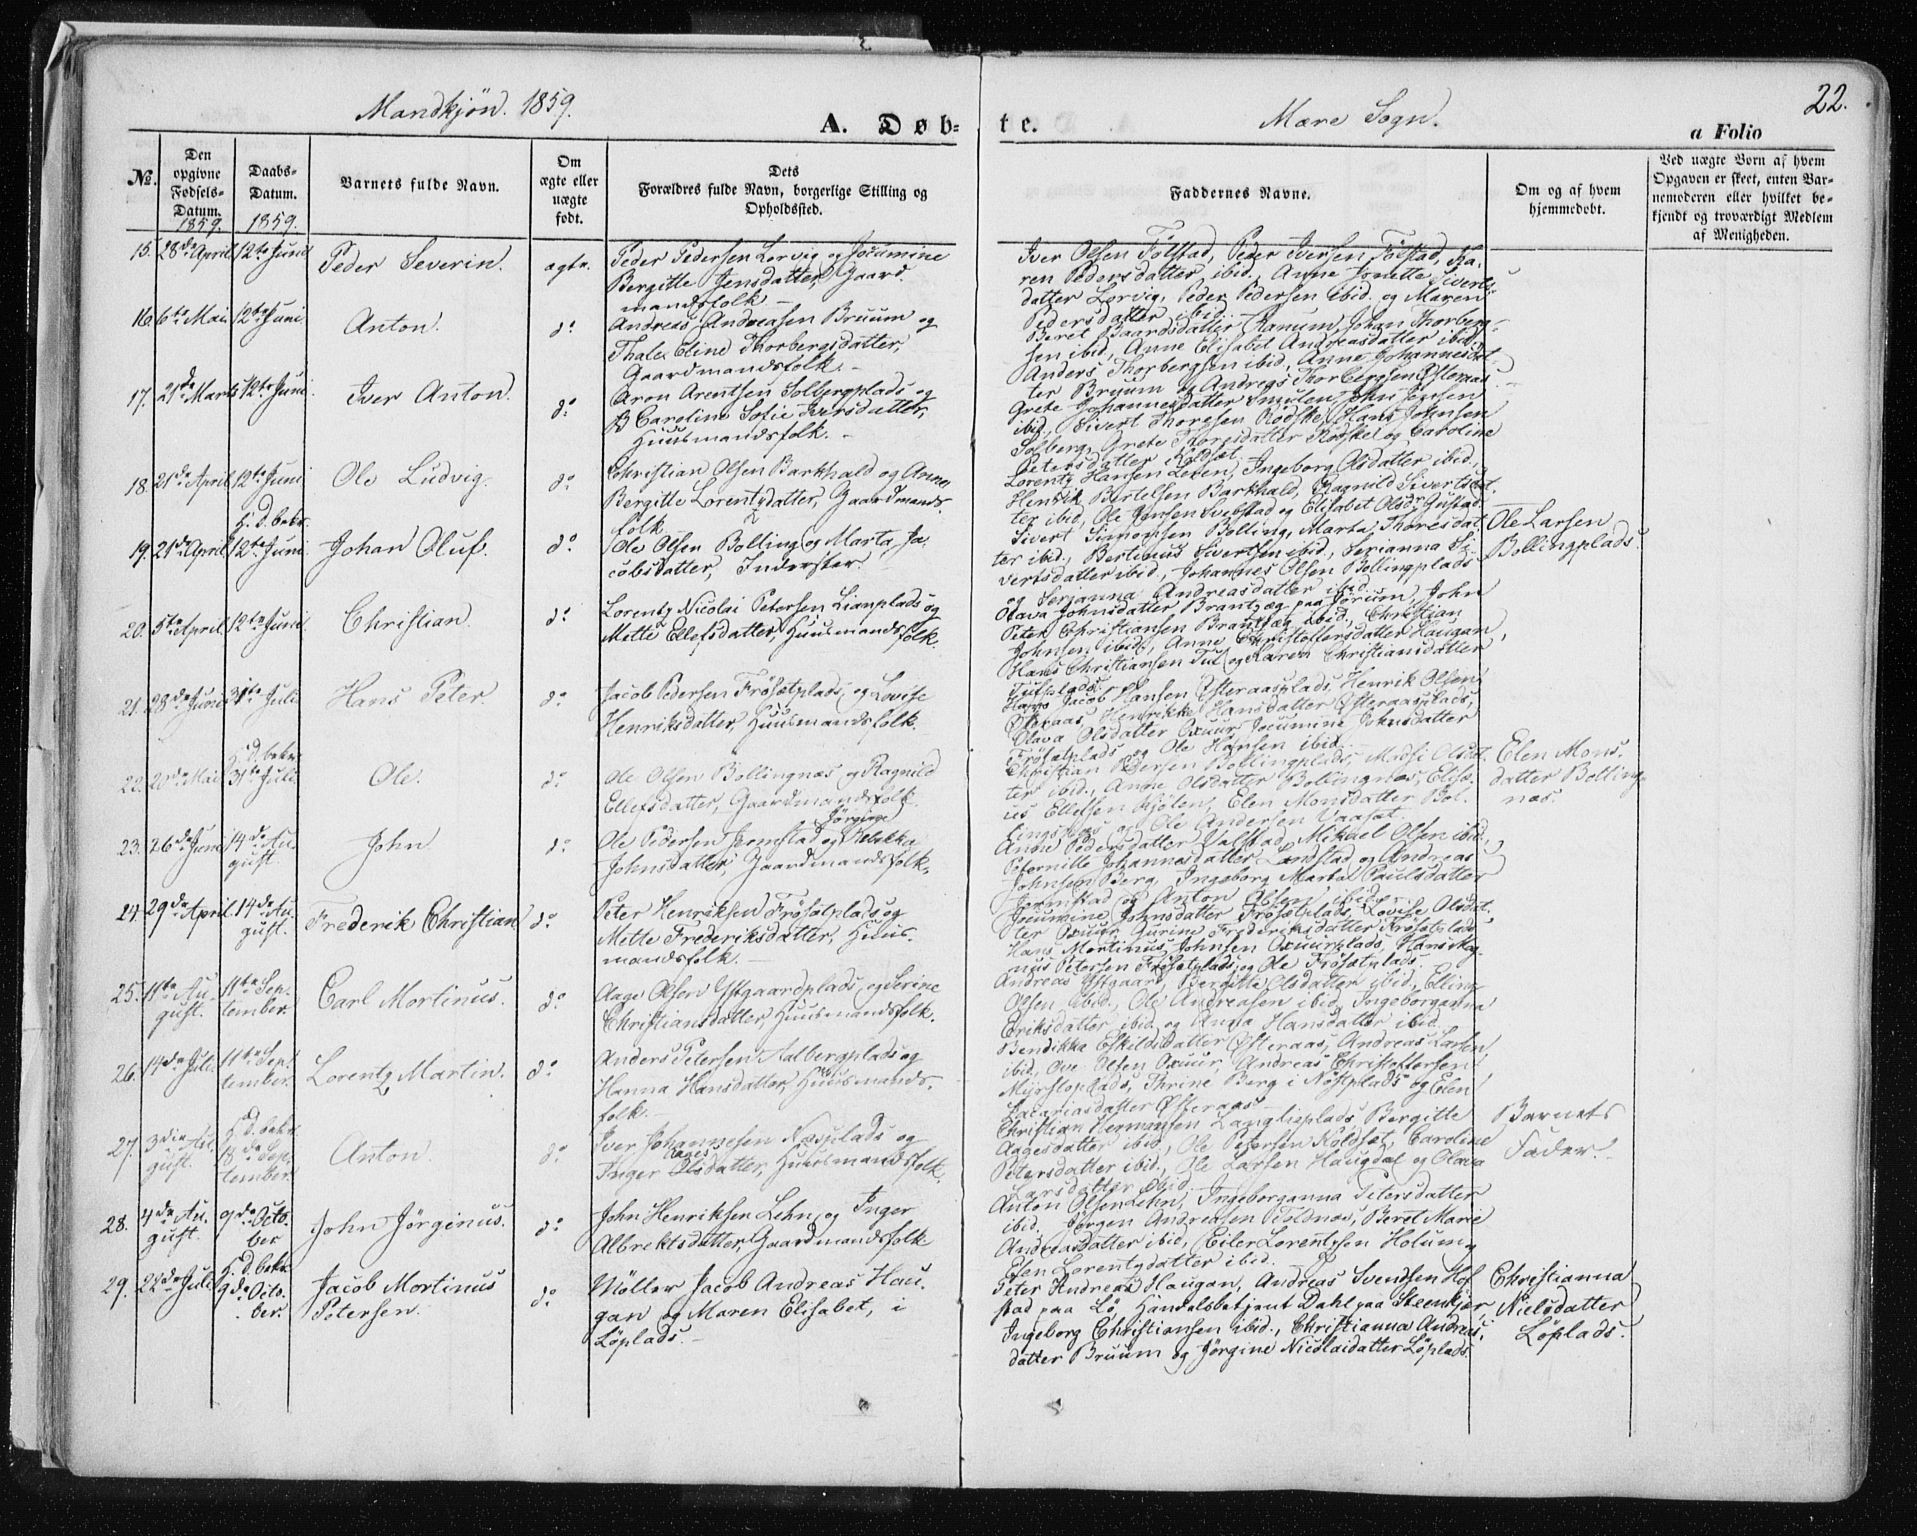 Mandkjøn. 1859.
A. Døb-
te.
Mære Sogn.
22.
a Folio
No.
Den opgivne Fødsels-Datum. 1859.
Daabs-Datum. 1859.
Barnets fulde Navn.
Om ægte eller uægte født.
Dets Forældres fulde Navn, borgerlige Stilling og Opholdssted.
Faddernes Navne.
Om og af hvem hjemmedøbt.
Ved uægte Børn af hvem Opgaven er skeet, enten Barnemoderen eller hvilket bekjendt og troværdigt Medlem af Menigheden.
15. 28de April 12te Juni Peder Severin. ægte.
Peder Pedersen Lorvig og Jocumine
Bergitte Jensdatter, Gaard
mandsfolk.
Iver Olsen Følstad, Peder Iversen Følstad, Ka-
ren Pedersdatter ibid., Anne Jonette Siverts-
datter Lorvig, Peder Pedersen ibid. og Maren
Pedersdatter ibid.
16. 6te Mai 12te Juni Anton. do
Andreas Andreasen Bruum og
Thale Eline Thorbergsdatter,
Gaardmandsfolk.
Beret Baardsdatter Ranum, Johan Thorberg-
sen ibid., Anne Elisabet Andreasdatter ibid.,
Anders Thorbergsen ibid., Anne Johannesdat-
ter Bruum og Andreas Thorbergsen Østeraas.
17. 21de Marts 12te Juni Iver Anton. do
Aron Arentsen Solbergplads og
Caroline Sofie Iversdatter,
Huusmandsfolk.
Grete Johannesdatter, John Jensen
ibid., Sivert Thoresen Rødske, Hans Johnsen
Solberg, Grete Thoresdatter Rødske og Caroline
Petersdatter Koldsæt.
18. 21de April 12te Juni Ole Ludvig. do
Christian Olsen Barkhald og Anne
Bergitte Lorentzdatter, Gaardmands-
folk
Lorentz Hansen Leren, Ingeborg Olsdatter ibid.,
Henrik Bertelsen Barkhald, Ragnild Sivertsdat-
ter ibid., Ole Jensen og Elisabet Olsdr
19. 21de April H. d. bekr. 12te Juni Johan Oluf. do
Ole Olsen Bolling og Marta Ja-
cobsdatter, Inderster.
Sivert Simonsen Bolling, Marta Thoresdat-
ter ibid., Bertinus Sivertsen ibid., Serianna Si-
vertsdatter ibid., Johannes Olsen Bollingplads
og Serianna Andreasdatter ibid.
Ole Larsen
Bollingplads.
20. 5te April 12te Juni Christian. do
Lorentz Nicolai Petersen Lianplads og
Mette Ellefsdatter, Huusmandsfolk.
Olava Johnsdatter Brantzæg paa Jørum, John
Peter Christiansen Brantzæg ibid., Christian
Johnsen ibid., Anne Christoffersdatter Haugan,
Hans Christiansen Tuf og Karen Christiansdatter
Tufplads.
21. 28de Juni 31te Juli Hans Peter. do
Jacob Pedersen Frøsætplads og Lovise
Henriksdatter, Huusmandsfolk.
Hans Jacob Hansen Østeraasplads, Henrik Olsen
Østeraas, Henrikke Hansdatter Østeraasplads,
Olava Olsdatter Oxuur, Jocumine Johnsdatter
Frøsætplads og Ole Hansen ibid.
22. 2den Mai H. d. bekr. 31te Juli Ole. do
Ole Olsen Bollingnæs og Ragnild
Ellefsdatter, Gaardmandsfolk.
Christian Pedersen Bollingplads, Madsi Olsdat-
ter ibid., Anne Olsdatter Bollingnæs, Elisæ-
us Ellefsen Kjølen, Elen Monsdatter Bol-
lingsplads og Ole Andersen Vaasæt.
Elen Mons-
datter Bolling-
næs.
23. 26de Juni 14de August John do
Ole Pedersen Jormstad og Jørgine Rebekka
Johnsdatter, Gaardmandsfolk.
Anne Pedersdatter Valstad, Mikael Olsen ibid.,
Peternille Johannesdatter Landstad, Andreas
Johnsen Berg, Ingeborg Marta Paulsdatter
Jormstad og Anton Olsen ibid.
24. 29de April 14de August. Frederik Christian do
Peter Henriksen Frøsætplads og
Mette Frederiksdatter, Huus-
mandsfolk.
Jocumine Johnsdatter Frøsætplads, Lovise Olsdat-
ter Oxuur, Gurine Frederiksdatter Frøsætplads,
Hans Martinus Johnsen Oxuurplads, Hans Mag-
nus Petersen Frøsætplads og Ole Frøsætplads.
25. 11te August. 11te September. Carl Mortinus. do
Aage Olsen Østgaardplads og Serine
Christiansdatter, Huusmandsfolk.
Andreas Østgaard, Bergitte Olsdatter ibid., Elling
Olsen ibid., Ole Andreasen ibid., Ingeborganna
Eriksdatter ibid. og Anna Hansdatter ibid.
26. 14de Juli 11te September. Lorentz Martin. do
Anders Petersen Aalbergplads og
Hanna Hansdatter, Huusmands-
folk.
Bendikka Eskildsdatter Østeraas, Andreas Larsen
ibid., Ove Olsen Oxuur, Andreas Christoffersen
Myrstoplads, Thrine Berg i Nøstplads og Elen
Zacariasdatter Østeraas
27. 3die August. H. d. bekr. 18de September. Anton. do
Iver Johannesen Næsplads og
Inger Aagesdatter, Huusmandsfolk.
Christian Hermansen Langlieplads, Bergitte
Aagesdatter ibid., Ole Petersen Koldsæt, Caroline
Petersdatter ibid., Ole Larsen Haugdal og Olava
Larsdatter ibid.
Barnets
Fader.
28. 4de August. 9de October John Jørginus. do
John Henriksen Lehn og Inger
Albrektsdatter, Gaardmandsfolk
Anton Olsen Lehn, Ingeborganna Petersdatter
ibid. Jørgen Andreasen Toldnæs, Beret Marie
Andreasdatter ibid., Eiler Lorentzsen Holum,
Elen Lorentzdatter ibid.
29. 22de Juli H. d. bekr. 9de October. Jacob Mortinus
Petersen. do
Møller Jacob Andreas Hau-
gan og Maren Elisabet, i
Løplads.
Peter Andreas Haugan, Andreas Svendsen Hof
stad paa Lø, Handelsbetjent Dahl paa Steenkjær,
Ingeborg Christiansen ibid., Christianna Andreas-
datter Bruum og Jørgine Nicolaidatter Løplads.
Christianna
Nielsdatter
Løplads.